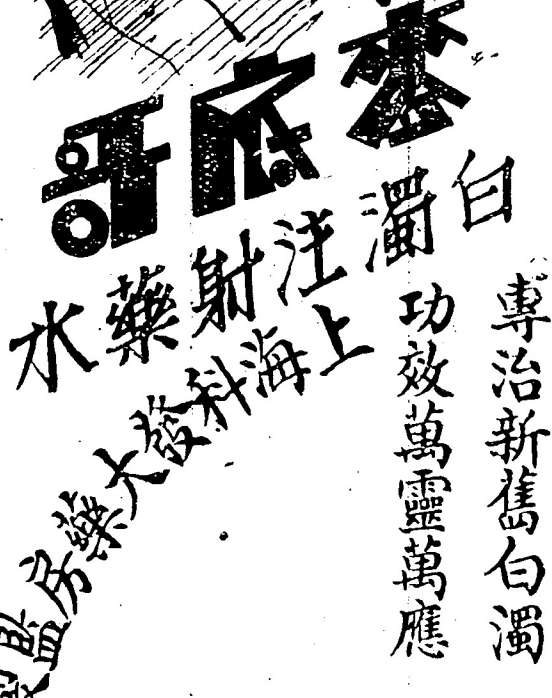 底哥
白濁注射藥水
上海科發大藥房監製
專治新舊白濁
功效萬靈萬應